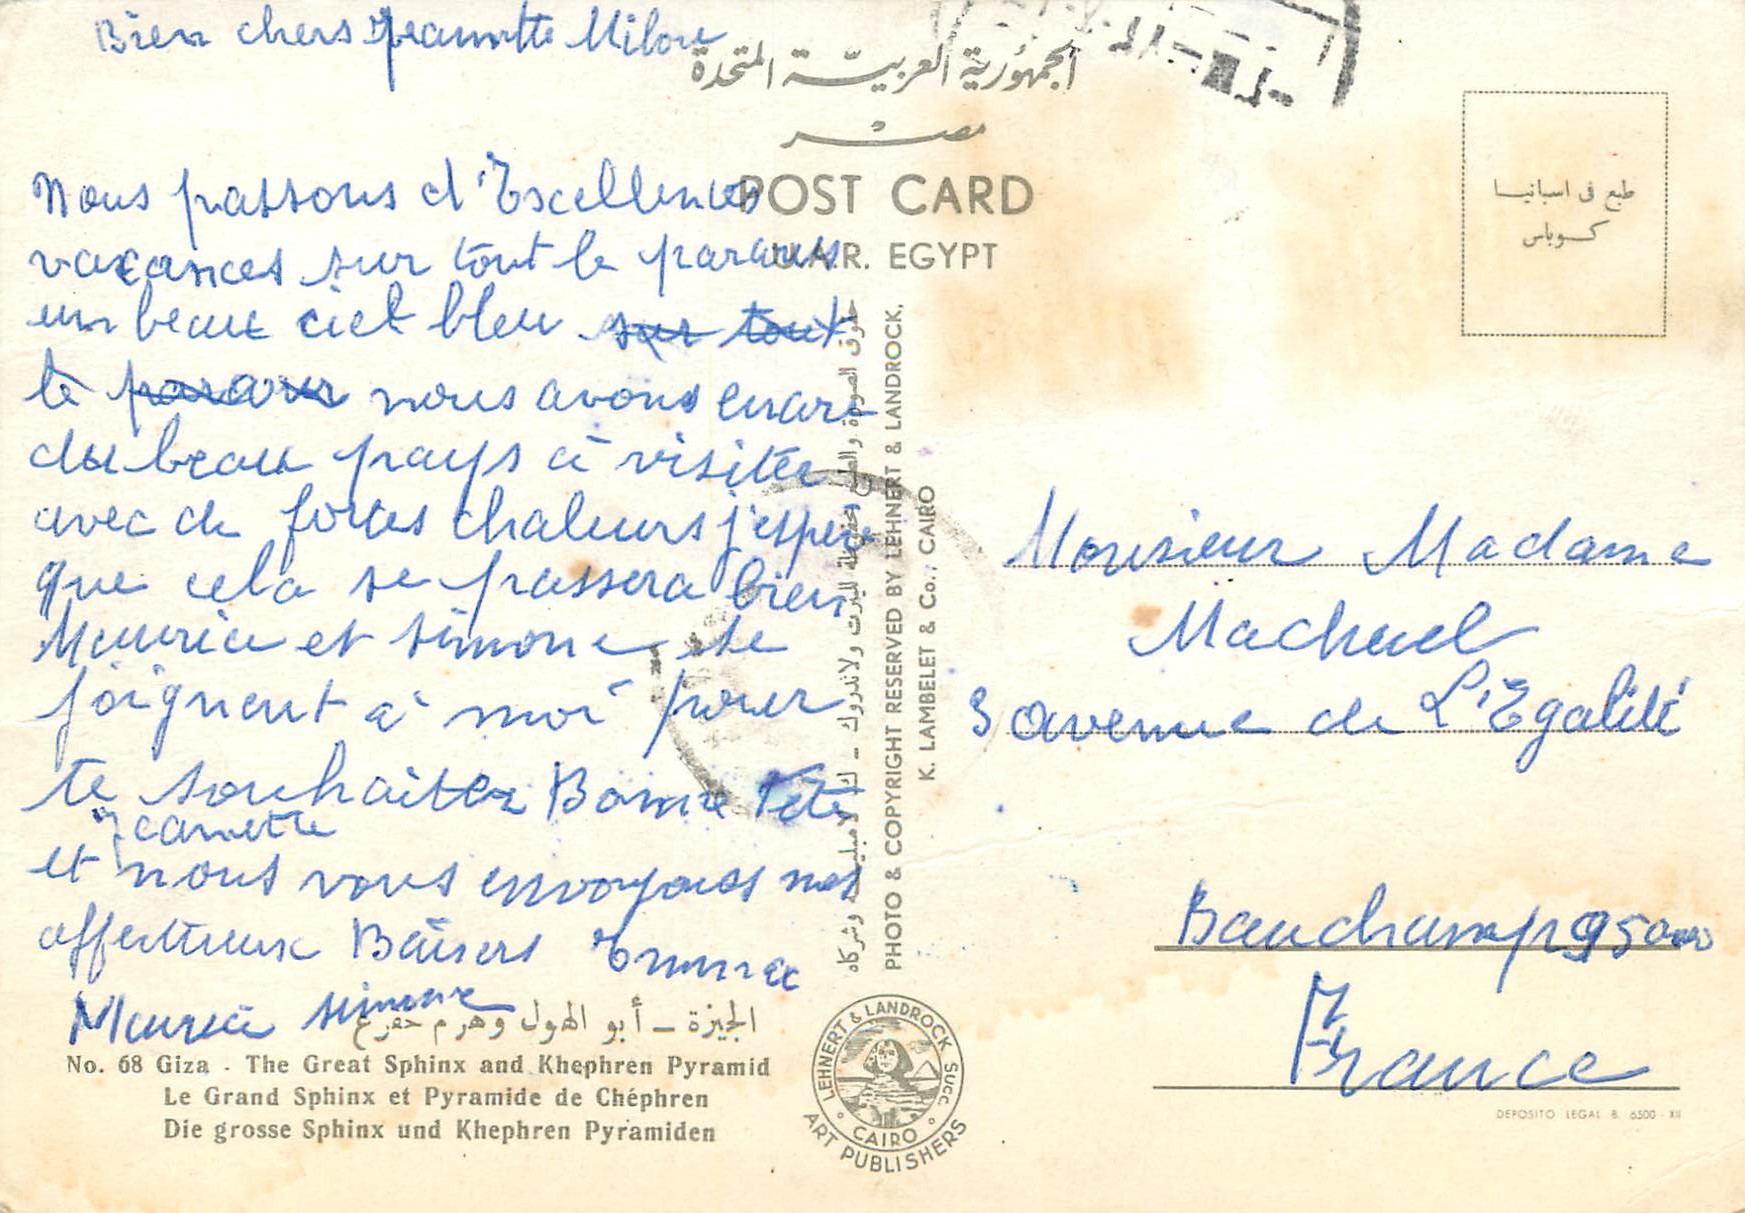 Bien chers Jeannette Milou
Nous passons d'Excellences
vacances sur tout le parcours
un beau ciel bleu sur tout
le parcours nous avons encore
du beau pays à visitée
avec de fortes chaleurs j'espère
que cela se passera bien
Maurice et Simone se
joignent à moi pour
te souhaiter Bonne Fête
Jeannette
et nous vous envoyons nos
affectueux Baisers Emma
Maurice Simone
الجمهورية العربية المتحدة
مصر
POST CARD
U.A.R. EGYPT
طبع فى اسبانيا
كوباس
حقوق الصورة والطبع محفوظة للينرت ولاندروك - ك. لامبليه وشركاه
PHOTO & COPYRIGHT RESERVED BY LEHNERT & LANDROCK.
K. LAMBELET & Co., CAIRO
Monsieur Madame
Machuel
3 avenue de L'Egalité
Bauchamp 95000
France
الجيزة - أبو الهول وهرم خفرع
No. 68 Giza - The Great Sphinx and Khephren Pyramid
Le Grand Sphinx et Pyramide de Chéphren
Die grosse Sphinx und Khephren Pyramiden
LEHNERT & LANDROCK SUCC.
CAIRO
ART PUBLISHERS
DEPOSITO LEGAL B. 6500 - XII